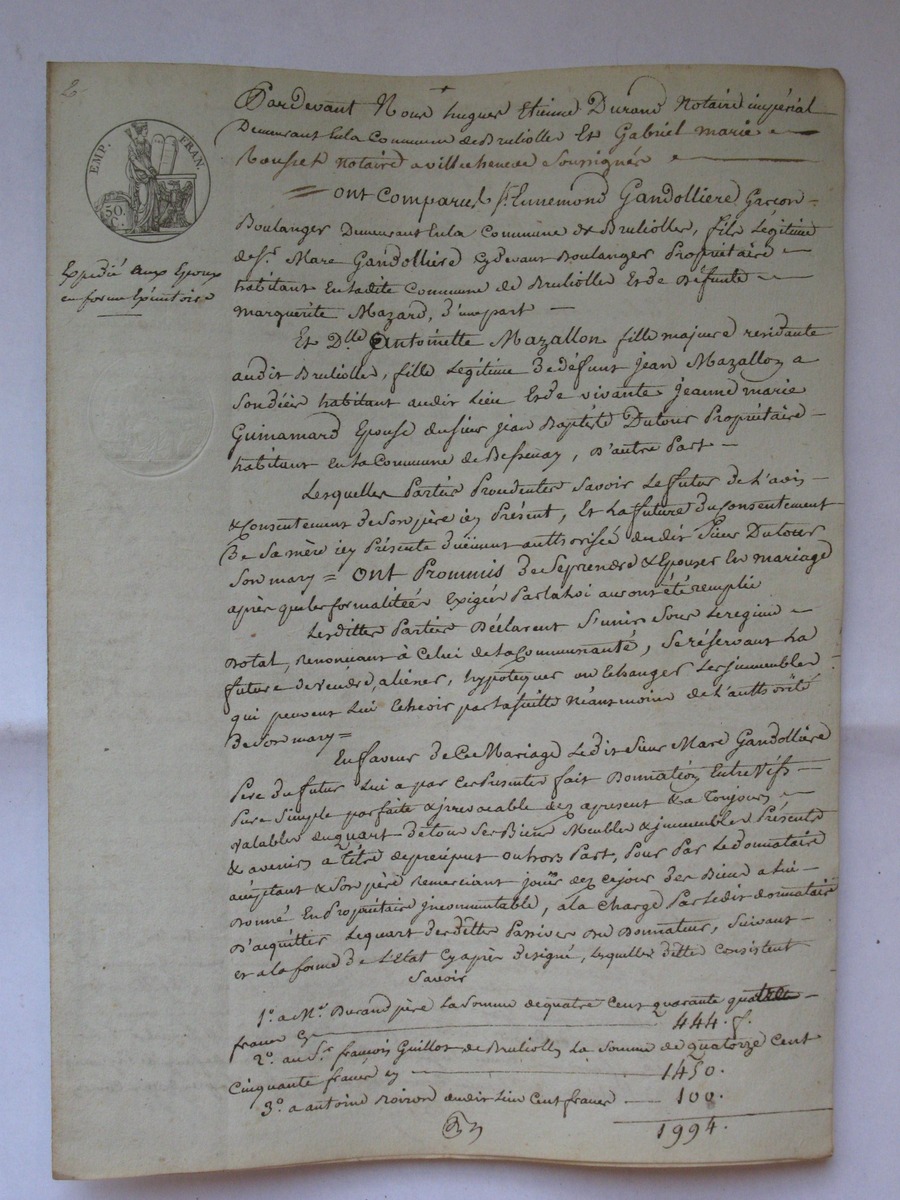 2
EMP. FRAN.
50. C.
Expedié aux Epoux
en forme Exécutoire
Pardevant Nous hugues Etienne Durand Notaire impérial
Demeurant En la Commune de Bruliolles Et Gabriel marie
Rousset Notaire a villecheneve Soussignés
= ont Comparu, Sr. Ennemond Gandolliere Garcon
Boulanger Demeurant En la Commune de Brulioller, fils Légitime
de Sr. Marc Gandolliere Cydevant Boulanger Propriétaire
habitant En Ladite Commune de Brulioller Et de Défunte
marguerite Mazard, D'une part
Et Dlle Antoinette Mazallon fille majeure residante
audit Brulioller, fille Légitime De défunt jean Mazallon a
Son décès habitant audit Lieu Et de vivante jeanne marie
Guinamard Epouse du Sieur jean Baptiste Dutour Propriétaire
habitant En La Commune de Bessenay, D'autre Part
Lesquelles Parties Procédantes Savoir Le futur de L'avis
& Consentement de Son père icy Présent, Et La future du Consentement
De Sa mère icy Présente Duëment authorisée dudit Sieur Dutour
Son mary = ont Prommis De Se prendre & Epouser En mariage
après que les formalitées Exigées Par La Loi auront été remplie
Les dittes Parties Déclarent S'unir Sous Le regime
Dotal, renonçant à Celui de La Communauté, Se réservant La
future de vendre, aliéner, hypotequer ou Echanger Les immeubles
qui peuvent Lui Echeoir par La suitte Néantmoins de L'authorité
De Son mary =
En faveur De Ce Mariage Le dit Sieur Marc Gandolliere
Père du futur Lui a par Ces Presentes fait Donnation Entre Vifs
Pure Simple parfaite & irrevocable dez apresent & a Toujours
valable du quart de tous Ses Biens Meubles & immeubles Présents
& avenirs a titre de préciput ou hors Part, Pour Par Le donnataire
acceptant & Son père remerciant jouir dez ce jour des Biens a Lui
Donné En Propriétaire incommutable, a la Charge Par Le dit donnataire
D'acquitter Le quart des dettes Passives du Donnateur, Suivant
et a la forme de L'Etat Cy après designé, Lesquelles dettes Consistent
Savoir
1.° a Mr. Durand père La Somme de quatre Cent quarante quatre
francs Cy 444. f.
2.° au Sr. françois Guillot de Brulioller La Somme de quatorze Cent
Cinquante francs Cy 1450.
3.° a antoine roiron dudit Lieu Cent francs 100.
1994.